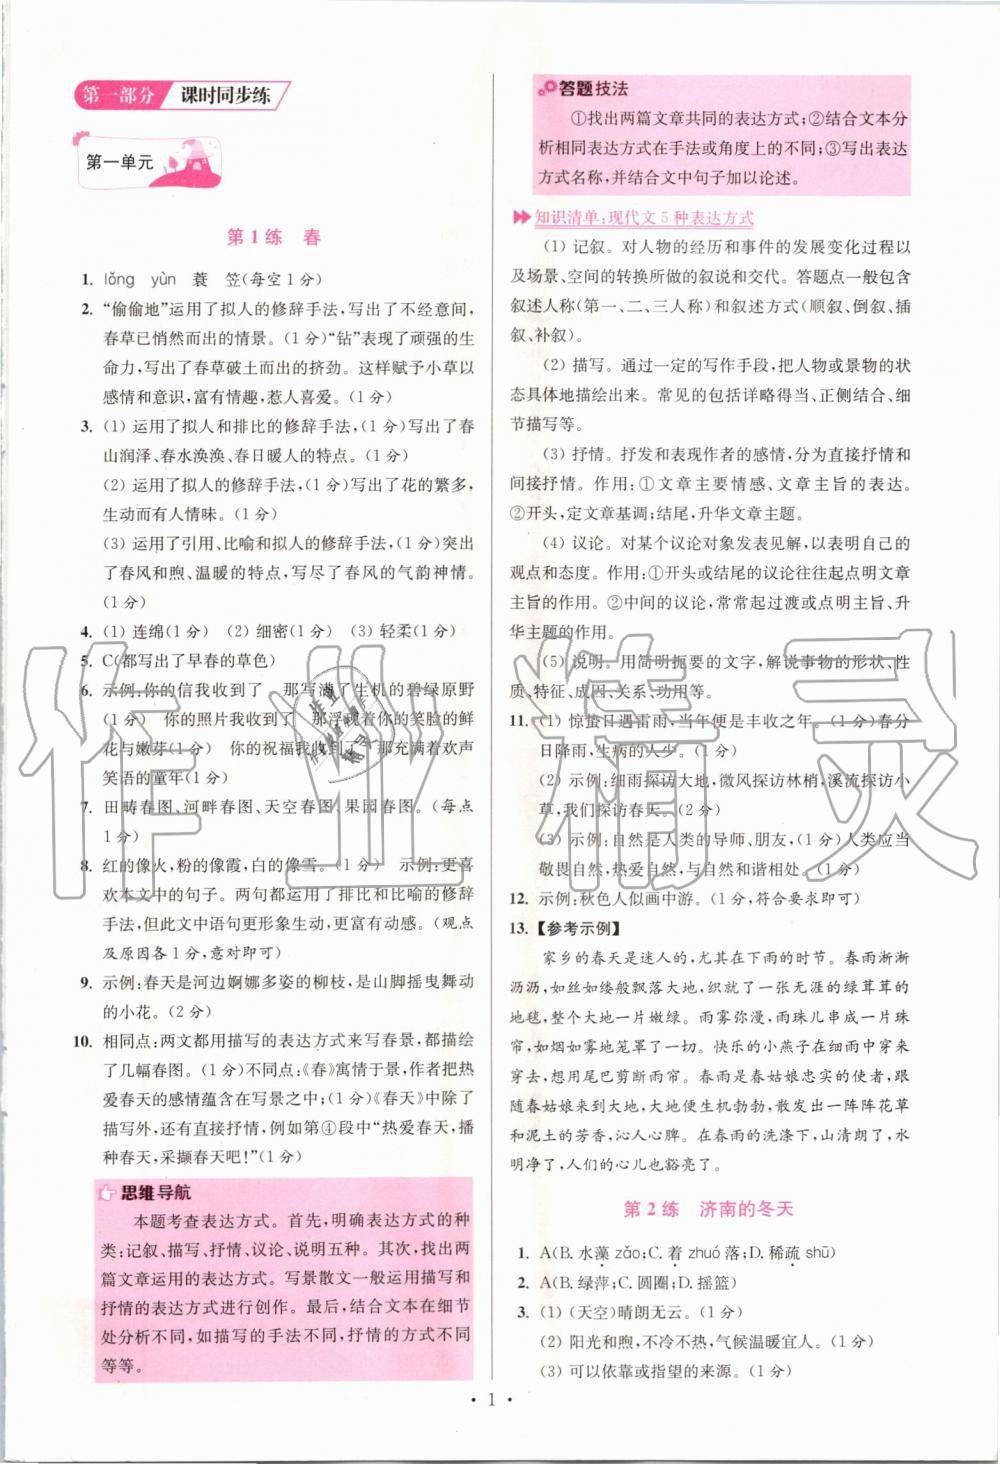 第一部分 课时同步练
第一单元
第1练 春
1. lǒng yùn 蓑 笠(每空1分)
2. “偷偷地”运用了拟人的修辞手法,写出了不经意间,
春草已悄然而出的情景。(1分)“钻”表现了顽强的生
命力,写出了春草破土而出的挤劲。这样赋予小草以
情感和意识,富有情趣,惹人喜爱。(1分)
3. (1) 运用了拟人和排比的修辞手法,(1分)写出了春
山润泽、春水涣涣、春日暖人的特点。(1分)
(2) 运用了拟人的修辞手法,(1分)写出了花的繁多,
生动而有人情味。(1分)
(3) 运用了引用、比喻和拟人的修辞手法,(1分)突出
了春风和煦、温暖的特点,写尽了春风的气韵神情。
(1分)
4. (1) 连绵(1分) (2) 细密(1分) (3) 轻柔(1分)
5. C(都写出了早春的草色)
6. 示例:你的信我收到了 那写满了生机的碧绿原野
(1分) 你的照片我收到了 那浮现着你的笑脸的鲜
花与嫩芽(1分) 你的祝福我收到了 那充满着欢声
笑语的童年(1分)
7. 田畴春图、河畔春图、天空春图、果园春图。(每点
1分)
8. 红的像火,粉的像霞,白的像雪。(1分) 示例:更喜
欢本文中的句子。两句都运用了排比和比喻的修辞
手法,但此文中语句更形象生动、更富有动感。(观点
及原因各1分,意对即可)
9. 示例:春天是河边婀娜多姿的柳枝,是山脚摇曳舞动
的小花。(2分)
10. 相同点:两文都用描写的表达方式来写春景,都描绘
了几幅春图。(1分)不同点:《春》寓情于景,作者把热
爱春天的感情蕴含在写景之中;(1分)《春天》中除了
描写外,还有直接抒情,例如第④段中“热爱春天,播
种春天,采撷春天吧!”(1分)
思维导航
本题考查表达方式。首先,明确表达方式的种
类:记叙、描写、抒情、议论、说明五种。其次,找出两
篇文章运用的表达方式。写景散文一般运用描写和
抒情的表达方式进行创作。最后,结合文本在细节
处分析不同,如描写的手法不同,抒情的方式不同
等等。
答题技法
①找出两篇文章共同的表达方式;②结合文本分
析相同表达方式在手法或角度上的不同;③写出表达
方式名称,并结合文中句子加以论述。
知识清单:现代文5种表达方式
(1) 记叙。对人物的经历和事件的发展变化过程以
及场景、空间的转换所做的叙说和交代。答题点一般包含
叙述人称(第一、二、三人称)和叙述方式(顺叙、倒叙、插
叙、补叙)。
(2) 描写。通过一定的写作手段,把人物或景物的状
态具体地描绘出来。常见的包括详略得当、正侧结合、细
节描写等。
(3) 抒情。抒发和表现作者的感情,分为直接抒情和
间接抒情。作用:①文章主要情感、文章主旨的表达。
②开头,定文章基调;结尾,升华文章主题。
(4) 议论。对某个议论对象发表见解,以表明自己的
观点和态度。作用:①开头或结尾的议论往往起点明文章
主旨的作用。②中间的议论,常常起过渡或点明主旨、升
华主题的作用。
(5) 说明。用简明扼要的文字,解说事物的形状、性
质、特征、成因、关系、功用等。
11. (1) 惊蛰日遇雷雨,当年便是丰收之年。(1分)春分
日降雨,生病的人少。(1分)
(2) 示例:细雨探访大地,微风探访林梢,溪流探访小
草,我们探访春天。(2分)
(3) 示例:自然是人类的导师、朋友,(1分)人类应当
敬畏自然,热爱自然,与自然和谐相处。(1分)
12. 示例:秋色人似画中游。(1分,符合要求即可)
13. 【参考示例】
家乡的春天是迷人的,尤其在下雨的时节。春雨淅淅
沥沥,如丝如缕般飘落大地,织就了一张无涯的绿茸茸的
地毯,整个大地一片嫩绿。雨雾弥漫,雨珠儿串成一片珠
帘,如烟如雾地笼罩了一切。快乐的小燕子在细雨中穿来
穿去,想用尾巴剪断雨帘。春雨是春姑娘忠实的使者,跟
随春姑娘来到大地,大地便生机勃勃,散发出一阵阵花草
和泥土的芳香,沁人心脾。在春雨的洗涤下,山清朗了,水
明净了,人们的心儿也豁亮了。
第2练 济南的冬天
1. A(B. 水藻 zǎo;C. 着 zhuó 落;D. 稀疏 shū)
2. A(B. 绿萍;C. 圆圈;D. 摇篮)
3. (1) (天空)晴朗无云。(1分)
(2) 阳光和煦,不冷不热,气候温暖宜人。(1分)
(3) 可以依靠或指望的来源。(1分)
· 1 ·
作业精灵